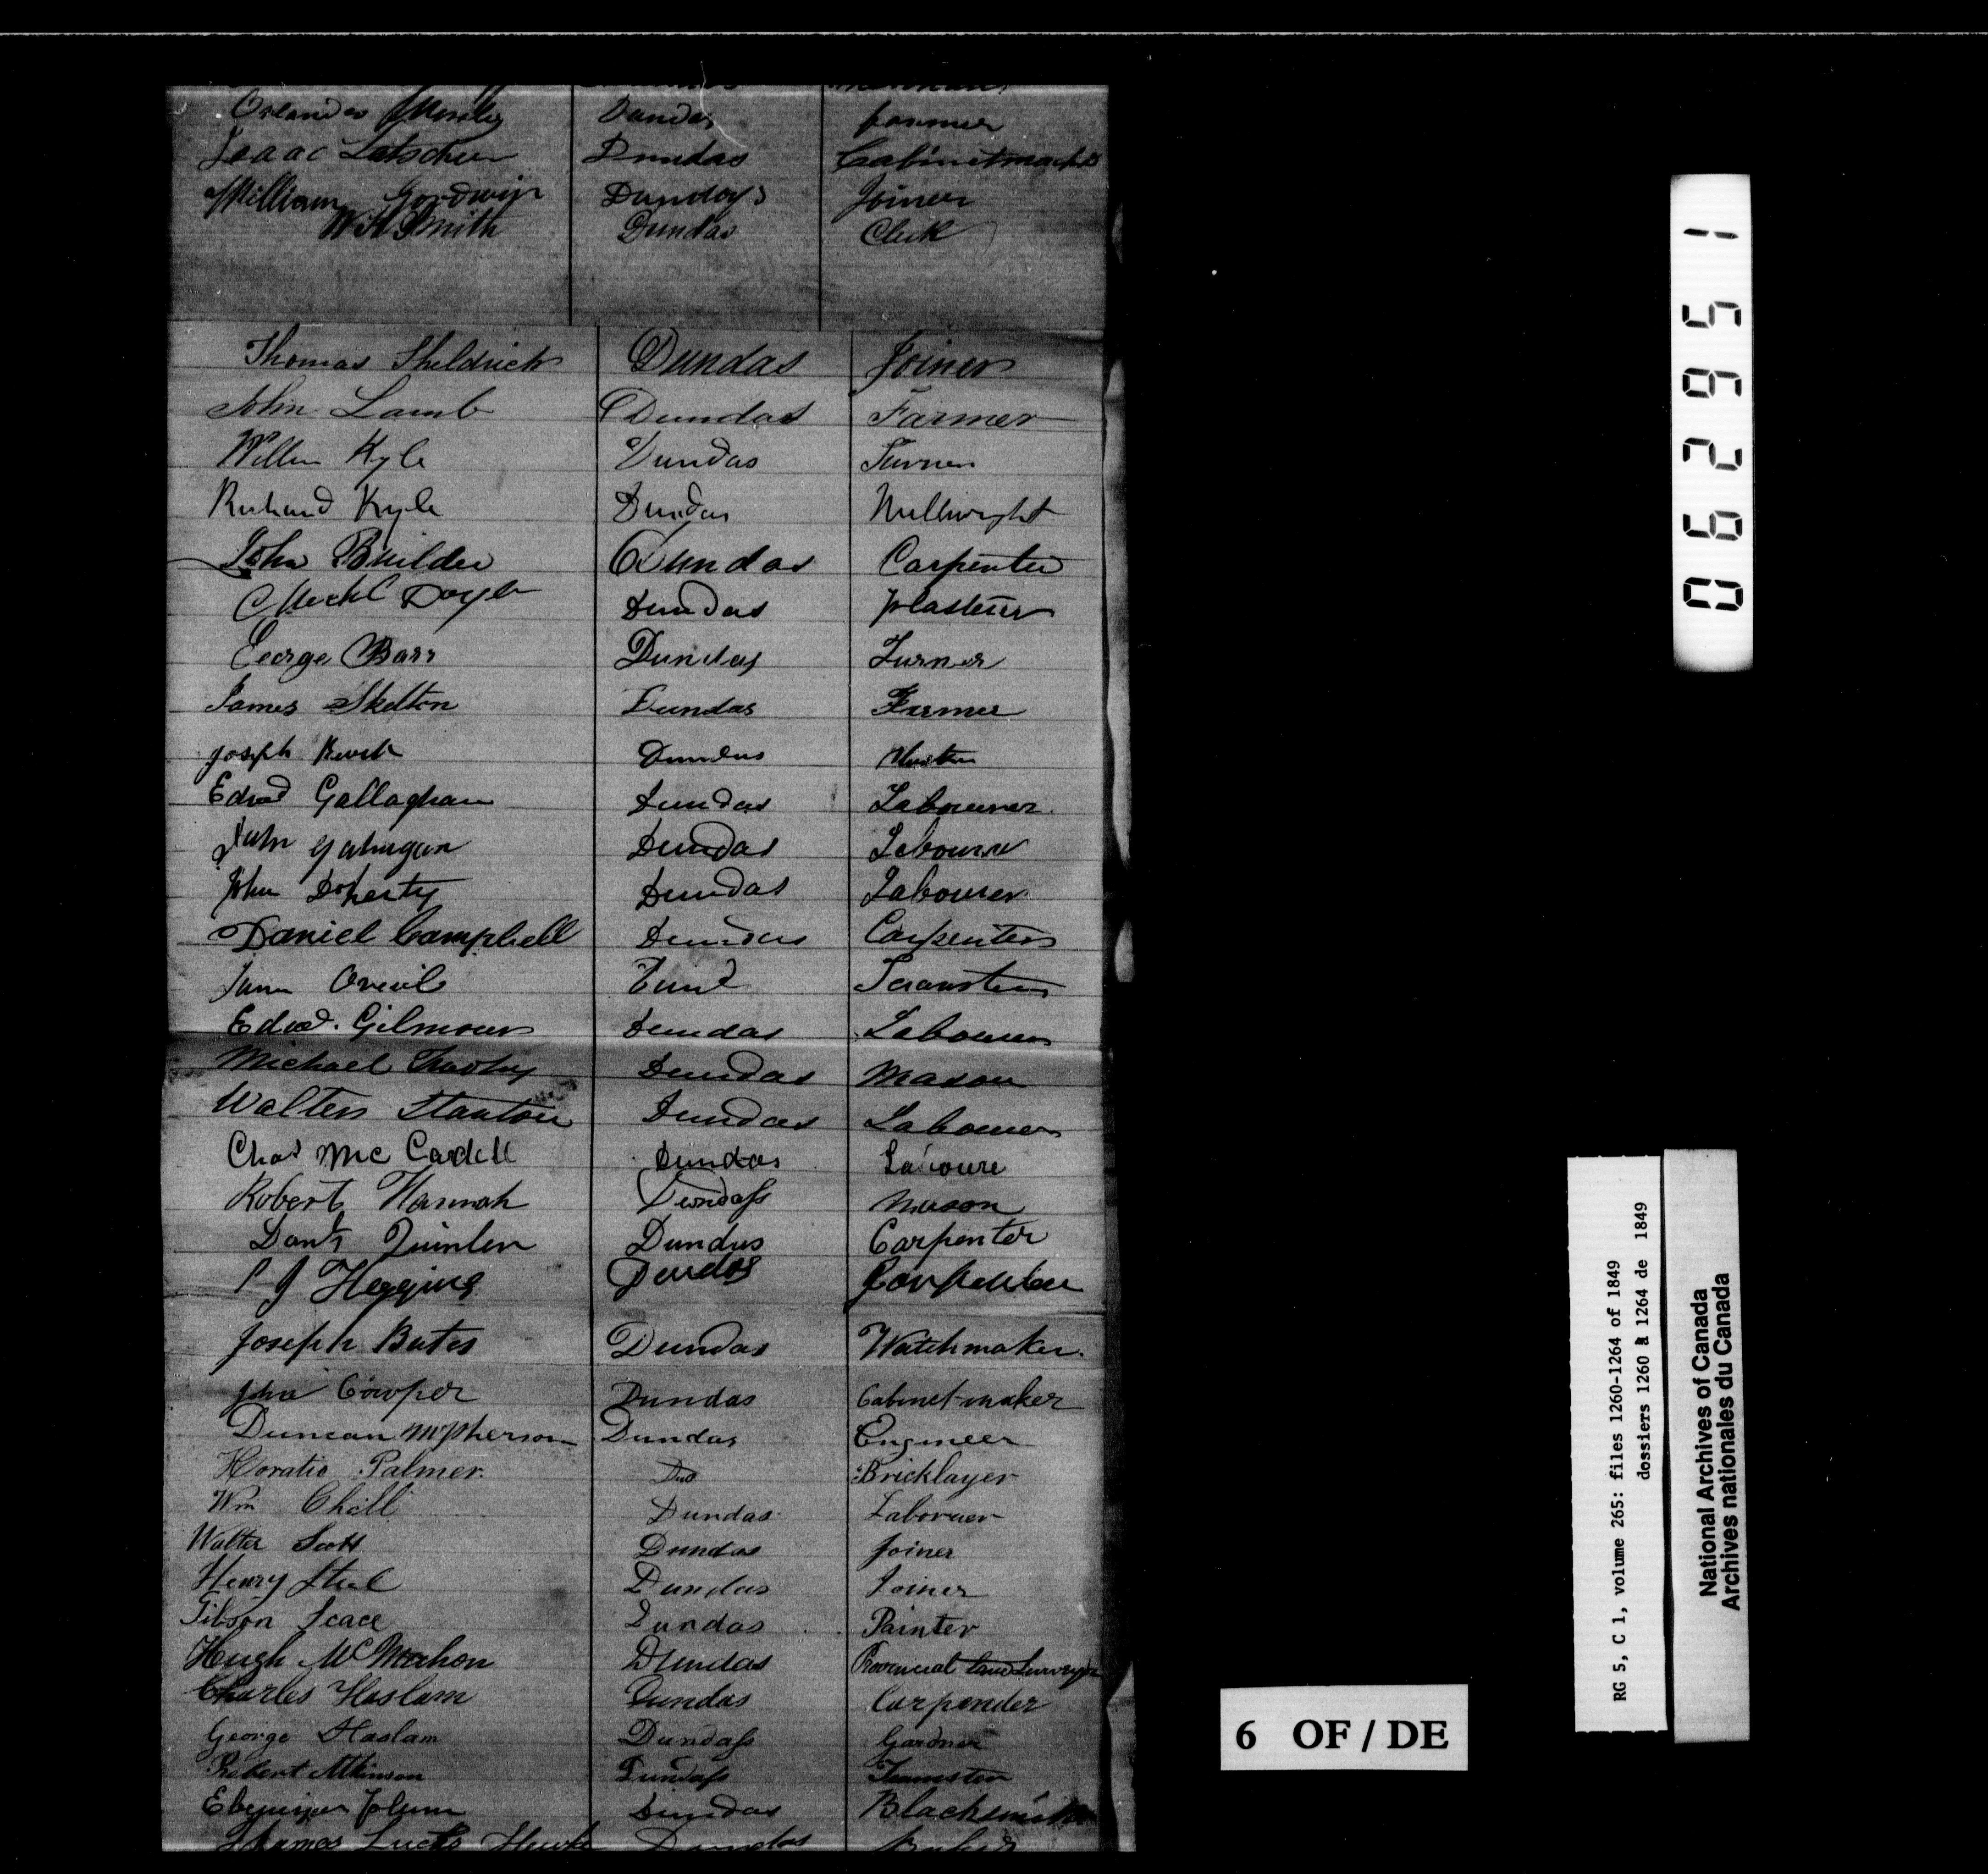 Dundas farmer
Isaac Latscher Dundas Cabinetmaker
William Goodwin Dundas Joiner
W H Smith Dundas Clerk
Thomas Sheldrick Dundas Joiner
John Lamb Dundas Farmer
Willm Kyle Dundas Turner
Richard Kyle Dundas Millwright
John Builder Dundas Carpenter
Michl Doyle Dundas plasterer
George Barr Dundas Turner
James Skelton Dundas Farmer
Joseph Dundas
Edwd Gallaghan Dundas Labourer
John Gahagan Dundas Labourer
John Doherty Dundas Labourer
Daniel Campbell Dundas Carpenter
Oneil Dund Teamster
Edwd. Gilmour Dundas Labourer
Michael Dundas Mason
Walter Stanton Dundas Labourer
Chas McCardell Dundas Laboure
Robert Hannah Dundass Mason
Danl Quinlen Dundas Carpenter
P J Heggins Dundas Carpenter
Joseph Bates Dundas Watchmaker.
Jhn Cowper Dundas Cabinet-maker
Duncan McPherson Dundas Engineer
Horatio Palmer. Do Bricklayer
Wm Chill Dundas Laboruer
Walter Scott Dundas Joiner
Henry Steel Dundas Joiner
Gibson Scace Dundas Painter
Hugh McMahon Dundas Provincial Land Surveyor
Charles Haslam Dundas Carpender
George Haslam Dundass Gardner
Robert Atkinson Dundass Teamster
Ebenezer Plum Dundas Blacksmith
Thomas Hawke Dundas
062951
RG 5, C 1, volume 265: files 1260-1264 of 1849
dossiers 1260 à 1264 de 1849
National Archives of Canada
Archives nationales du Canada
6 OF / DE